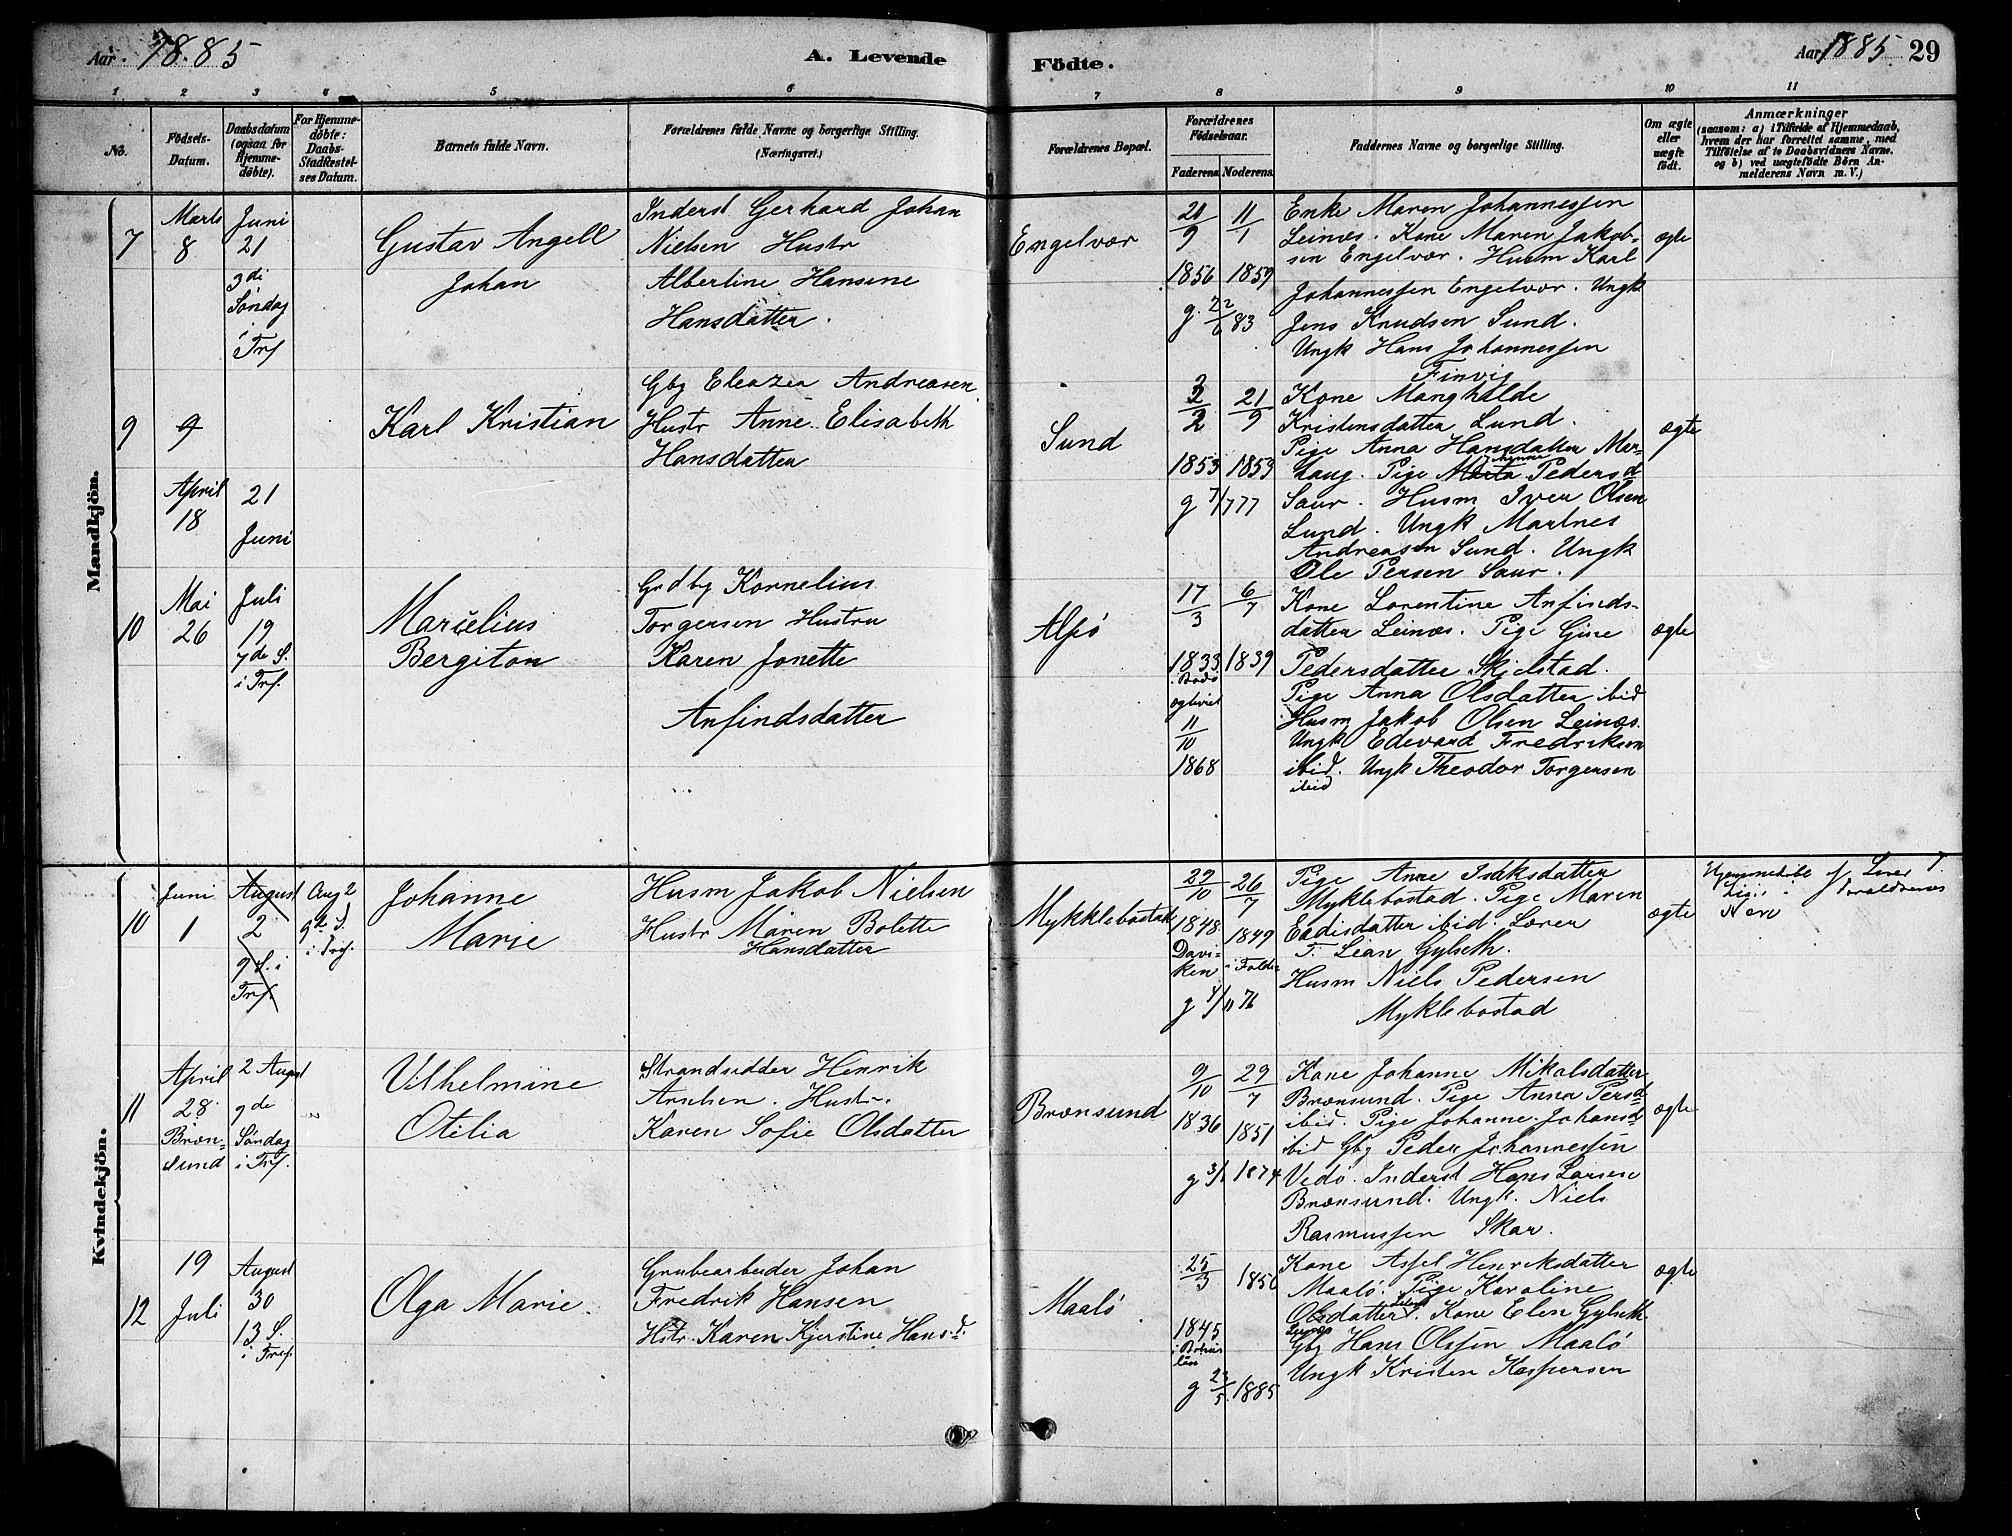 Aar. 1885
A. Levende
Födte.
Aar 1885. 29
1 2 3 4 5 6 7 8 9 10 11
No.
Födsels-Datum.
Daabsdatum (ogsaa for Hjemme-döbte).
For Hjemme-döbte: Daabs-Stadfæstel-ses Datum.
Barnets fulde Navn.
Forældrenes fulde Navne og borgerlige Stilling. (Næringsvei.)
Forældrenes Bopæl.
Forældrenes Födselsaar.
Faderens. Moderens.
Faddernes Navne og borgerlige Stilling.
Om ægte eller uægte födt.
Anmærkninger
(saasom: a) i Tilfælde af Hjemmedaab, hvem der har forrettet samme, med Tilföielse af to Daabsvidners Navne, og b) ved uægtefödte Börn An-melderens Navn m. V.)
Mandkjön.
7
Marts
8
Juni
21
3di
Søndag
i
Trf
Gustav Angell
Johan
Inderst Gerhard Johan
Nielsen Hustr
Albertine Hansine
Hansdatter.
Engelvær
21/9 11/1
1856 1859
g. 22/6 83
Enke Maren Johannessen
Leines. Kone Maren Jakob-
sen Engelvær. Husm Karl
Johannessen Engelvær. Ungk
Jens Knudsen Sund.
Ungk Hans Johannessen
Finvig
ægte
9
9
April
18
21
Juni
Karl Kristian
Gbg Eleazer Andreasen
Hustr Anne Elisabeth
Hansdatter
Sund
2 21/9
1853 1853
g 7/7 77
Kone Manghilde
Kristensdatter Lund.
Pige Anna Hansdatter
Pige Pedersd
Saur. Husm Iver Olsen
Lund. Ungk Martnes
Andreasen Sund. Ungk
Ole Persen Saur.
ægte
10
Mai
26
Juli
19
7de S.
i Trf.
Marselius
Bergiton
Grdbg Kornelius
Torgersen Hustru
Karen Jonette
Anfindsdatter
Alsø
17/3 6/7
1833 1839
i Bodø
ægteviet
11/10
1868
Kone Lorentine Anfinds-
datter Leines. Pige Gine
Pedersdatter Skjelstad.
Pige Anna Olsdatter ibid
Husm Jakob Olsen Leines.
Ungk Edevard Fredriksen
ibid. Ungk Theodor Torgersen
ibid
ægte
Kvindekjön.
10
Juni
1
August
2
9 S. i
Trf.
Aug 2
9de S.
i Trf.
Johanne
Marie
Husm Jakob Nielsen
Hustr Maren Bolette
Hansdatter
Mykklebostad
29/10 26/7
1848 1849
Davi-
ken
g 4/11 76
Pige Anne Isaksdatter
Myklebostad. Pige Maren
ibid. Lærer
T. Lian Gylseth.
Husm Niels Pedersen
Myklebostad
ægte
Hjemmedøbt af Lærer T.
Forældrenes
11
April
28
Bræn-
sund
2 August
9de
Søndag
i Trf.
Vilhelmine
Otilia
Strandsidder Henrik
Arntsen. Hustr.
Karen Sofie Olsdatter
Brænsund
9/10 29/7
1836 1851
g 3/1 1874
Kone Johanne Mikalsdatter
Brænsund. Pige Anna Persd
ibid. Pige Johanne Johansd
ibid Gbg Peder Johannessen
Vedø. Inderst Hans Larsen
Brænsund. Ungk. Niels
Rasmussen Skar.
ægte
12
19
Juli
August
30
13 S.
i Tref.
Olga Marie
Grubearbeider Johan
Fredrik Hansen
Hstr. Karen Kjerstine Hansd.
Maalø
25/3 1850
1845
g 23/5 1885
Kone Assel Henriksdatter
Maalø. Pige Karoline
Olsdatter. Kone Elen Gylseth
Gbg Hans Olssen Maalø
Ungk Kristen Kaspersen
ægte